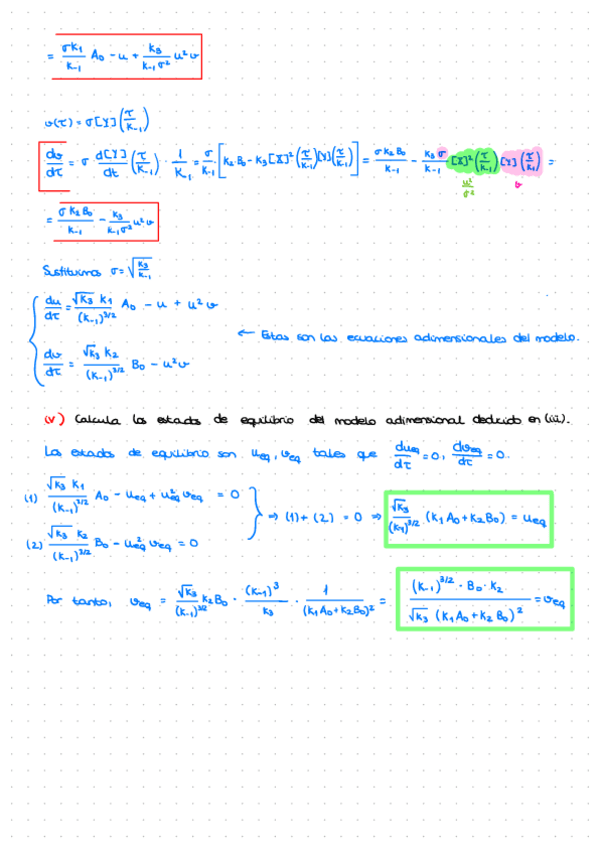 = σk₁/k₋₁ A₀ - u + k₃/(k₋₁σ²) u²v
v(τ) = σ[Y](τ/k₋₁)
dv/dτ = σ d[Y]/dt (τ/k₋₁) · 1/k₋₁ = σ/k₋₁ · [k₂·B₀ - k₃[X]²(τ/k₋₁)[Y](τ/k₋₁)] = σk₂B₀/k₋₁ - k₃σ/k₋₁ [X]²(τ/k₋₁)[Y](τ/k₁) =
u²/σ² v
= σk₂B₀/k₋₁ - k₃/(k₋₁σ²) u²v
Sustituimos σ = √(k₃/k₋₁)
du/dτ = √k₃ k₁/(k₋₁)^3/2 A₀ - u + u²v
← Estas son las ecuaciones adimensionales del modelo.
dv/dτ = √k₃ k₂/(k₋₁)^3/2 B₀ - u²v
(v) Calcula los estados de equilibrio del modelo adimensional deducido en (iii).
Los estados de equilibrio son u_eq, v_eq tales que du_eq/dτ = 0, dv_eq/dτ = 0.
(1) √k₃ k₁/(k₋₁)^3/2 A₀ - u_eq + u²_eq v_eq = 0
⇒ (1) + (2) = 0 ⇒ √k₃/(k₋₁)^3/2 (k₁A₀ + k₂B₀) = u_eq
(2) √k₃ k₂/(k₋₁)^3/2 B₀ - u²_eq v_eq = 0
Por tanto, v_eq = √k₃/(k₋₁)^3/2 k₂B₀ · (k₋₁)³/k₃ · 1/(k₁A₀ + k₂B₀)² = (k₋₁)^3/2 · B₀ · k₂/(√k₃ (k₁A₀ + k₂B₀)²) = v_eq